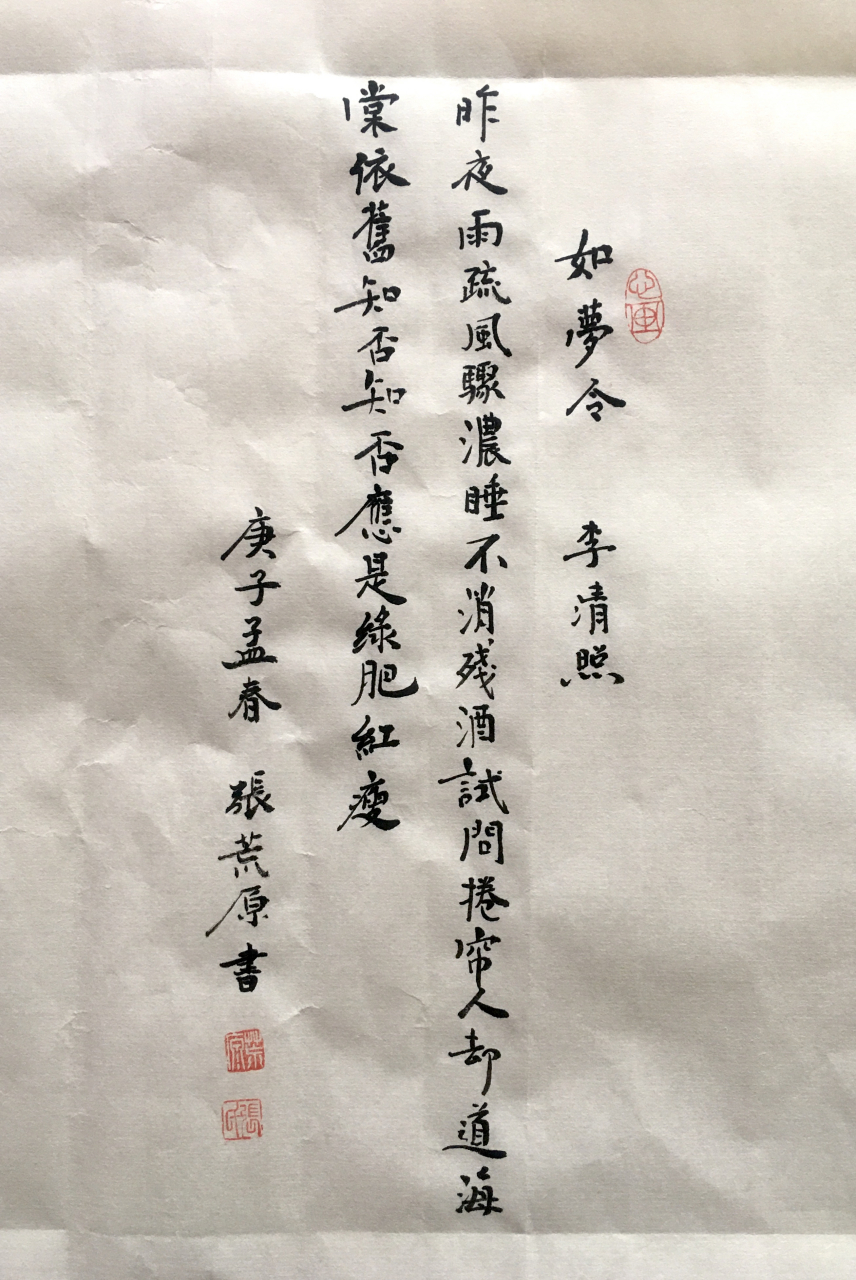 如夢令 李清照
昨夜雨疏風驟濃睡不消殘酒試問捲帘人却道海
棠依舊知否知否應是綠肥紅瘦
庚子孟春 張荒原書
荒原